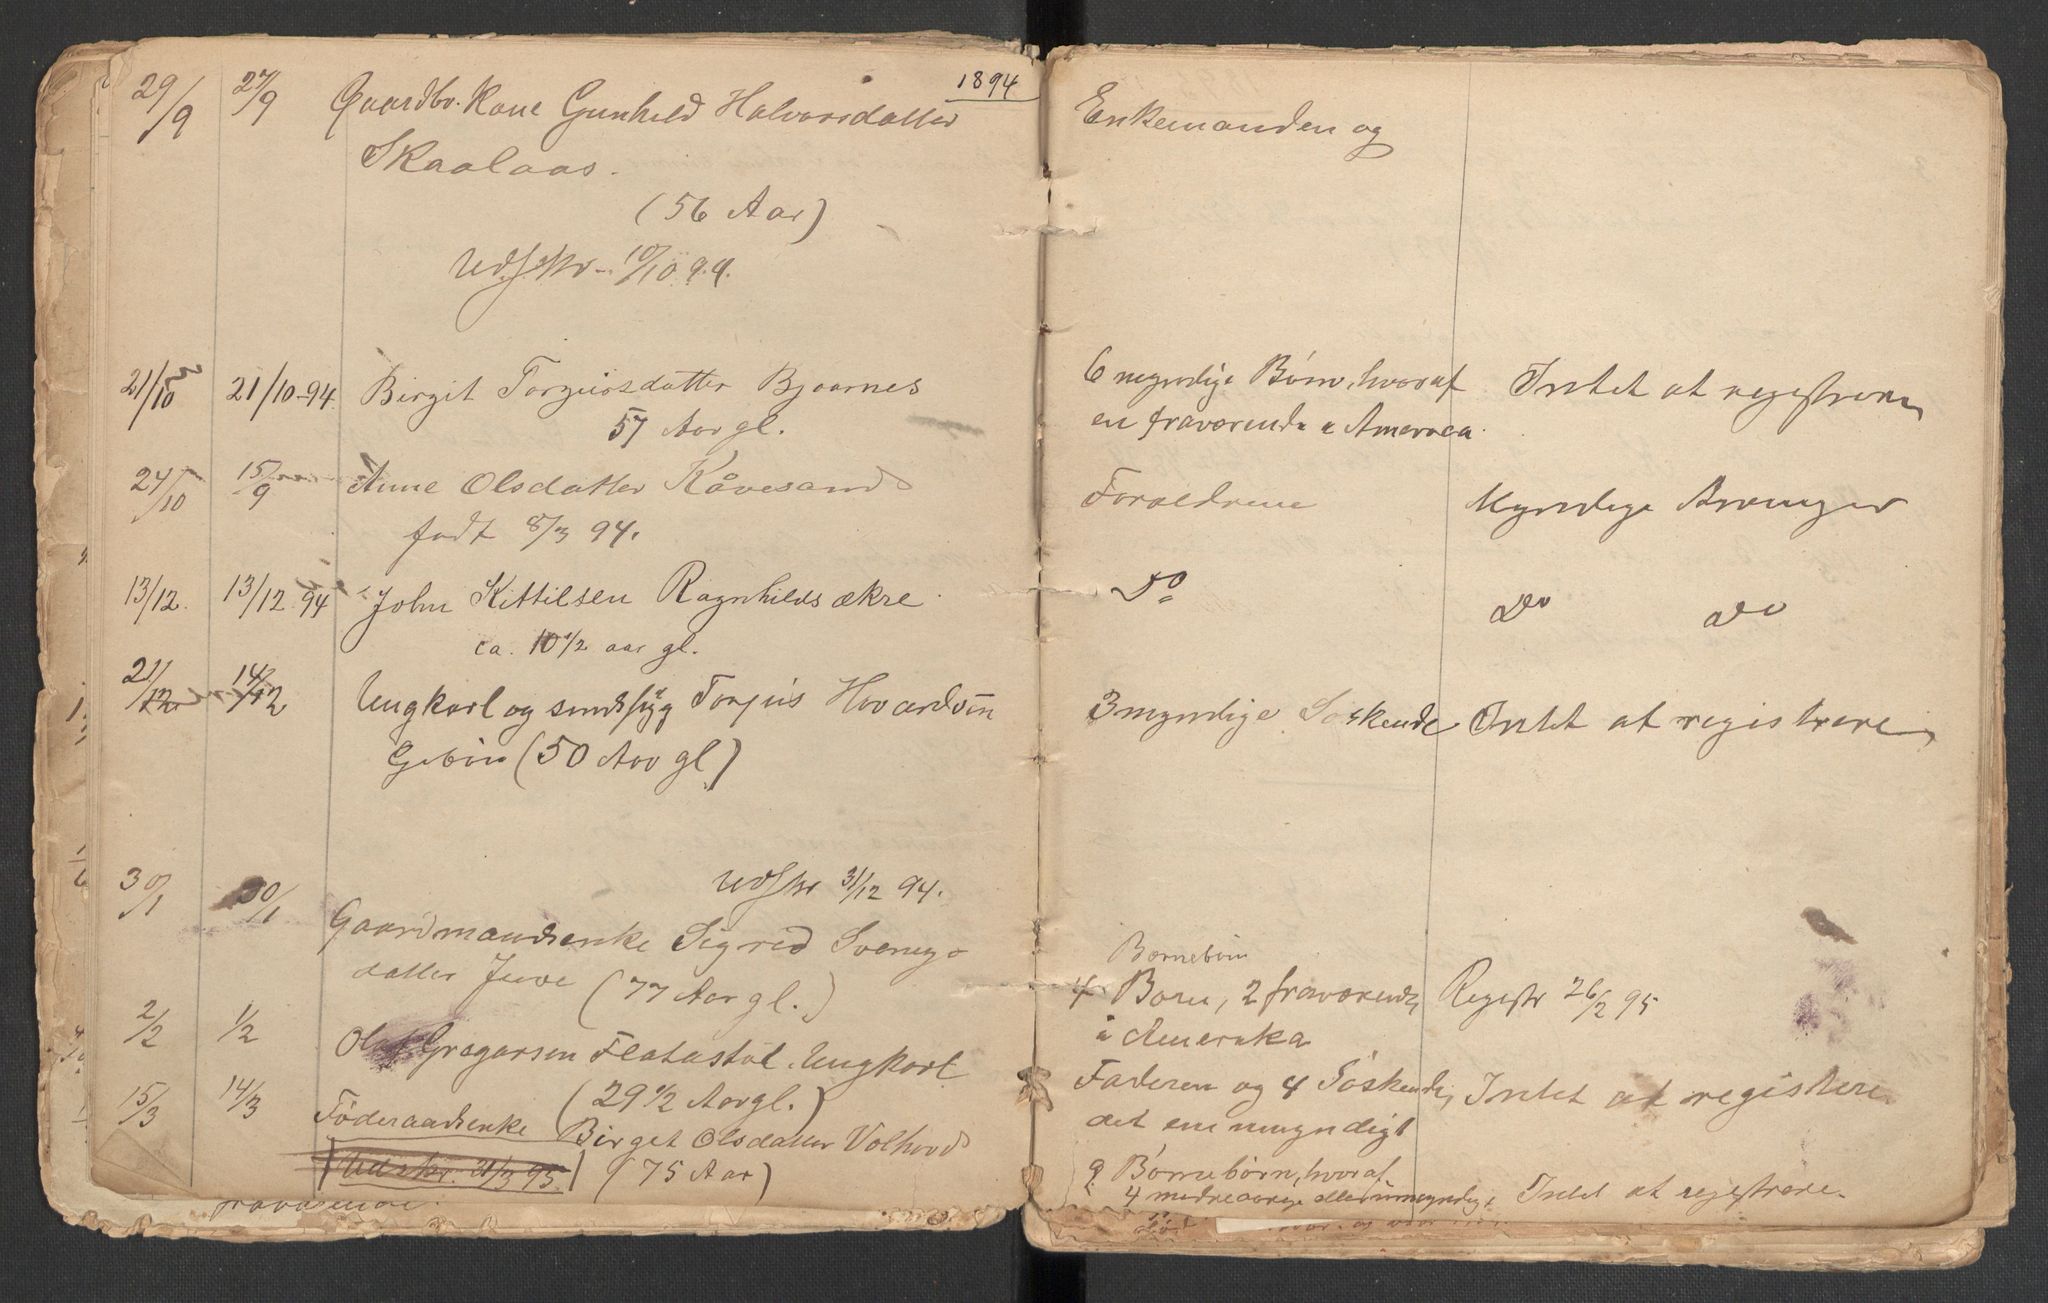 1894
29/9 27/9 Gaardbr. Kone Gunhild Halvorsdatter Enkemanden og
Skaalaas.
(56 Aar)
Udskr. 10/10 94.
21/10 21/10-94 Birgit Torgiusdatter Bjaarnes 6 myndige Børn, hvoraf Intet at registrere
57 Aar gl. en fraværende i Amerika
24/10 15/9 Anne Olsdatter Kåvesand Forældrene Myndige Arvinger
født 8/3 94.
13/12. 13/12 94 John Kittilsen Ragnhilds ækre Do Do Do
ca. 10 1/2 aar gl.
21/12 14/12 Ungkarl og sindssyg Torjus Hovardsen 3 myndige Søskende Intet at registrere
(50 Aar gl)
Udskr 31/12 94.
30/1 30/1 Gaardmandsenke Sigrid Svenug-
datter Juve (77 Aar gl.) Børnebørn
4 Børn, 2 fraværende Registr 26/2 95
i Amerika
2/2 1/2 Olaf Gregarsen Flatastøl. Ungkarl Faderen og 4 Søskende, Intet at registrere
(29 1/2 Aar gl.) det ene umyndigt
15/3 14/3 Føderaadsenke Birget Olsdatter Valhovd 9 Børnebørn, hvoraf
Udskr. 21/3 95. (75 Aar) 4 mindreaarige eller umyndige Intet at registrere.